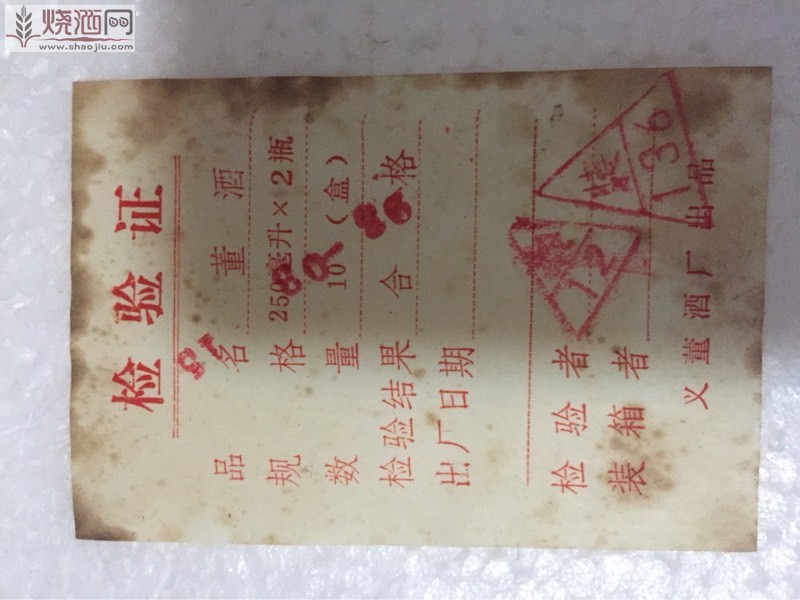 烧酒网
www.shaojiu.com
检验证
品名 董酒
规格 250毫升×2瓶
数量 10(盒)
检验结果 合格
出厂日期
检验者 12
装箱者 装 136
义董酒厂出品